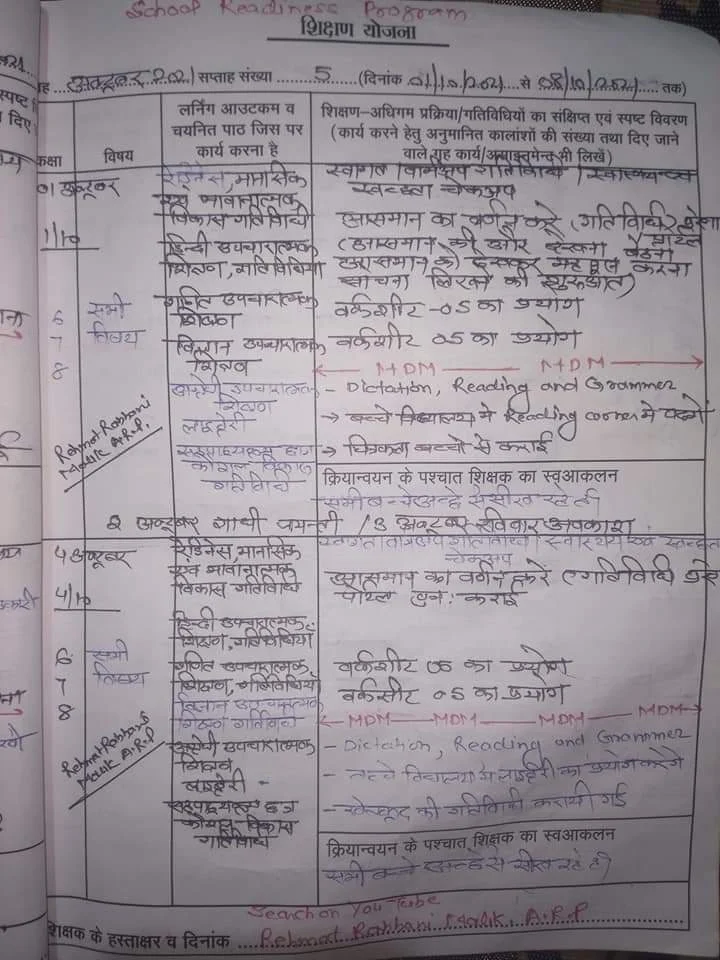 School Readiness Program
शिक्षण योजना
अक्टूबर 2021 सप्ताह संख्या 5 (दिनांक 01/10/2021 से 08/10/2021 तक)
कक्षा
विषय
लर्निंग आउटकम व
चयनित पाठ जिस पर
कार्य करना है
शिक्षण–अधिगम प्रक्रिया/गतिविधियों का संक्षिप्त एवं स्पष्ट विवरण
(कार्य करने हेतु अनुमानित कालांशों की संख्या तथा दिए जाने
वाले गृह कार्य/असाइनमेन्ट भी लिखें)
01 अक्टूबर
1/10
6
7
8
सभी
विषय
Rehmat Rabbani
Malik A.R.P.
रेडिनेस, मानसिक
एवं भावानात्मक
विकास गतिविधि
हिन्दी उपचारात्मक
शिक्षण, गतिविधियां
गणित उपचारात्मक
शिक्षण
विज्ञान उपचारात्मक
शिक्षण
उपचारात्मक
शिक्षण
लाइब्रेरी
कौशल विकास
गतिविधि
स्वागत वार्मअप गतिविधि / स्वास्थ्य एवं
स्वच्छता चेकअप
आसमान का वर्णन करें (गतिविधि) प्रेरणा
(आसमान की ओर देखना बैठना
आसमान को देखकर महसूस करना
सोचना लिखने की शुरुआत)
वर्कशीट -05 का प्रयोग
वर्कशीट 05 का प्रयोग
MDM MDM
- Dictation, Reading and Grammer
→ बच्चे विद्यालय में Reading corner में पढेंगे
→ चित्रकला बच्चों से कराई
क्रियान्वयन के पश्चात शिक्षक का स्वआकलन
सभी बच्चे अच्छे से सीख रहे हैं।
2 अक्टूबर गांधी जयन्ती / 3 अक्टूबर रविवार अवकाश
4 अक्टूबर
4/10
6
7
8
सभी
विषय
Rehmat Rabbani
Malik A.R.P
रेडिनेस, मानसिक
एवं भावानात्मक
विकास गतिविधि
हिन्दी उपचारात्मक
शिक्षण, गतिविधियां
गणित उपचारात्मक
शिक्षण, गतिविधियां
विज्ञान उपचारात्मक
शिक्षण गतिविधि
उपचारात्मक
शिक्षण
लाइब्रेरी -
कौशल विकास
गतिविधि
स्वागत वार्मअप गतिविधि / स्वास्थ्य एवं स्वच्छता
चेकअप
आसमान का वर्णन करें (गतिविधि प्रेरणा
पोर्टल पुनः कराई
वर्कशीट 05 का प्रयोग
वर्कसीट 05 का प्रयोग
MDM MDM MDM MDM
- Dictation, Reading and Grammer
- बच्चे विद्यालय में लाइब्रेरी का प्रयोग करेंगे
- खेलकूद की गतिविधि करायी गई
क्रियान्वयन के पश्चात शिक्षक का स्वआकलन
सभी बच्चे अच्छे से सीख रहे हैं।
Search on You Tube
शिक्षक के हस्ताक्षर व दिनांक Rehmat Rabbani Malik, A.R.P